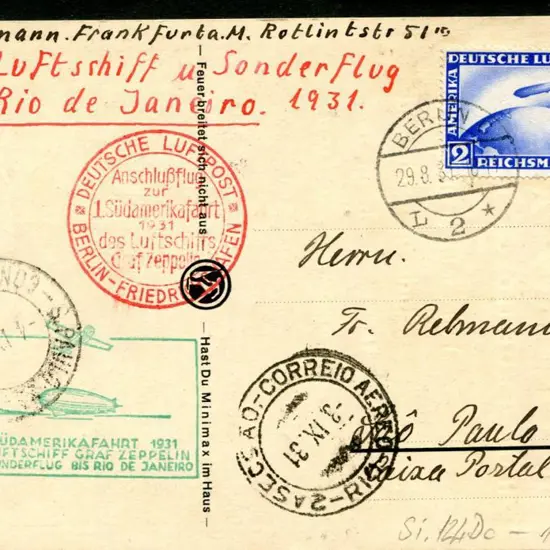 mann. Frankfurt a. M. Rotlintstr 51
Luftschiff u Sonderflug
Rio de Janeiro. 1931.
DEUTSCHE LUFTPOST
Anschlußflug
zur
1. Südamerikafahrt
1931
des Luftschiffs
Graf Zeppelin
BERLIN-FRIEDR HAFEN
Feuer breitet sich nicht aus
— Hast Du Minimax im Haus —
BERLIN
29.8.31.
L 2 *
DEUTSCHE LU
AMERIKA
2 REICHSM
Herrn
Fr. Rebmann
São Paulo
Caixa Postal
CORREIO AEREO
3 IX 31
2A SECÇÃO
RIO
S. PAULO
SÜDAMERIKAFAHRT 1931
UFTSCHIFF GRAF ZEPPELIN
ONDERFLUG BIS RIO DE JANEIRO